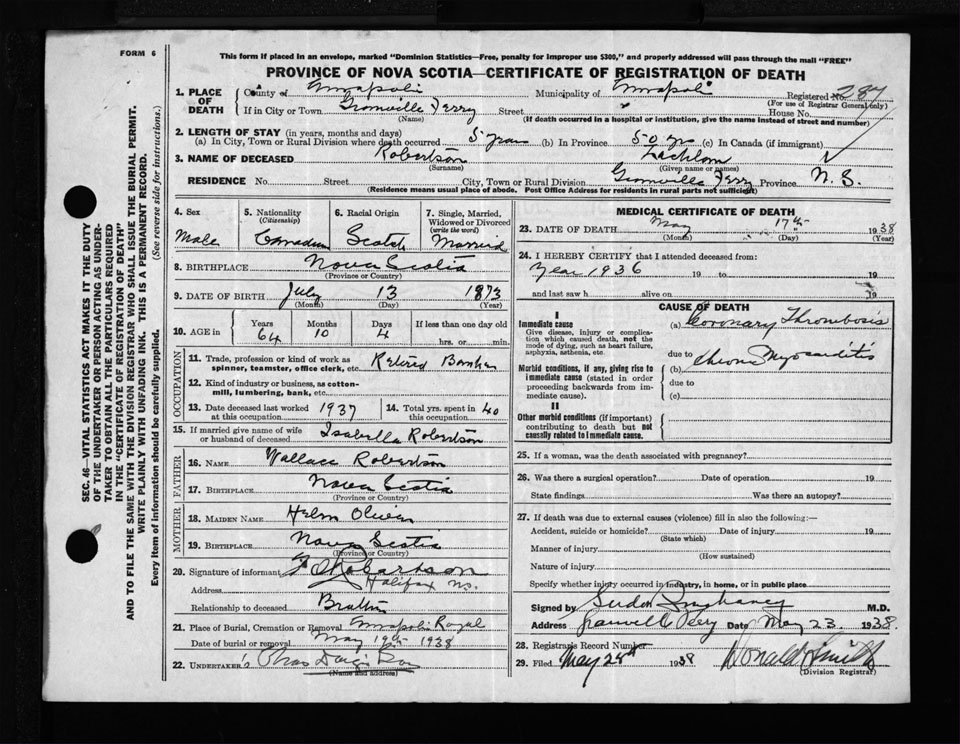 FORM 6
This form if placed in an envelope, marked "Dominion Statistics—Free, penalty for improper use $300," and properly addressed will pass through the mail "FREE"
PROVINCE OF NOVA SCOTIA—CERTIFICATE OF REGISTRATION OF DEATH
SEC. 46—VITAL STATISTICS ACT MAKES IT THE DUTY
OF THE UNDERTAKER OR PERSON ACTING AS UNDER-
TAKER TO OBTAIN ALL THE PARTICULARS REQUIRED
IN THE "CERTIFICATE OF REGISTRATION OF DEATH"
AND TO FILE THE SAME WITH THE DIVISION REGISTRAR WHO SHALL ISSUE THE BURIAL PERMIT.
WRITE PLAINLY WITH UNFADING INK. THIS IS A PERMANENT RECORD.
Every item of information should be carefully supplied. (See reverse side for instructions.)
1. PLACE OF DEATH
County of Annapolis Municipality of Annapolis Registered No. 287
(For use of Registrar General only)
If in City or Town Granville Ferry Street House No.
(Name) (If death occurred in a hospital or institution, give the name instead of street and number)
2. LENGTH OF STAY (in years, months and days)
(a) In City, Town or Rural Division where death occurred 5 years (b) In Province 50 yrs (c) In Canada (if immigrant)
3. NAME OF DECEASED Robertson Lachlan
(Surname) (Given name or names)
RESIDENCE No. Street City, Town or Rural Division Granville Ferry Province N. S.
(Residence means usual place of abode. Post Office Address for residents in rural parts not sufficient)
4. Sex Male
5. Nationality (Citizenship) Canadian
6. Racial Origin Scotch
7. Single, Married, Widowed or Divorced (write the word) Married
8. BIRTHPLACE Nova Scotia
(Province or Country)
9. DATE OF BIRTH July 13 1873
(Month) (Day) (Year)
10. AGE in Years 64 Months 10 Days 4 If less than one day old hrs. or min.
OCCUPATION
11. Trade, profession or kind of work as spinner, teamster, office clerk, etc. Retired Banker
12. Kind of industry or business, as cotton-mill, lumbering, bank, etc.
13. Date deceased last worked at this occupation 1937
14. Total yrs. spent in this occupation 40
15. If married give name of wife or husband of deceased Isabella Robertson
FATHER
16. NAME Wallace Robertson
17. BIRTHPLACE Nova Scotia
(Province or Country)
MOTHER
18. MAIDEN NAME Oliver
19. BIRTHPLACE Nova Scotia
(Province or Country)
20. Signature of informant Robertson
Address Halifax N.S.
Relationship to deceased Brother
21. Place of Burial, Cremation or Removal Annapolis Royal
Date of burial or removal May 19th 1938
22. UNDERTAKER'S
(Name and address)
MEDICAL CERTIFICATE OF DEATH
23. DATE OF DEATH May 17th 1938
(Month) (Day) (Year)
24. I HEREBY CERTIFY that I attended deceased from:
Year 1936 19 to 19
and last saw h alive on 19
CAUSE OF DEATH
I
Immediate cause
Give disease, injury or complication which caused death, not the mode of dying, such as heart failure, asphyxia, asthenia, etc.
(a) Coronary Thrombosis
due to
Morbid conditions, if any, giving rise to immediate cause (stated in order proceeding backwards from immediate cause).
(b) Chronic Myocarditis
due to
(c)
II
Other morbid conditions (if important) contributing to death but not causally related to immediate cause.
25. If a woman, was the death associated with pregnancy?
26. Was there a surgical operation? Date of operation 19
State findings Was there an autopsy?
27. If death was due to external causes (violence) fill in also the following:—
Accident, suicide or homicide? Date of injury 19
(State which)
Manner of injury
(How sustained)
Nature of injury
Specify whether injury occurred in industry, in home, or in public place
Signed by M.D.
Address Granville Ferry Date May 23 1938.
28. Registrars Record Number
29. Filed May 28th 1938 Donald Smith
(Division Registrar)